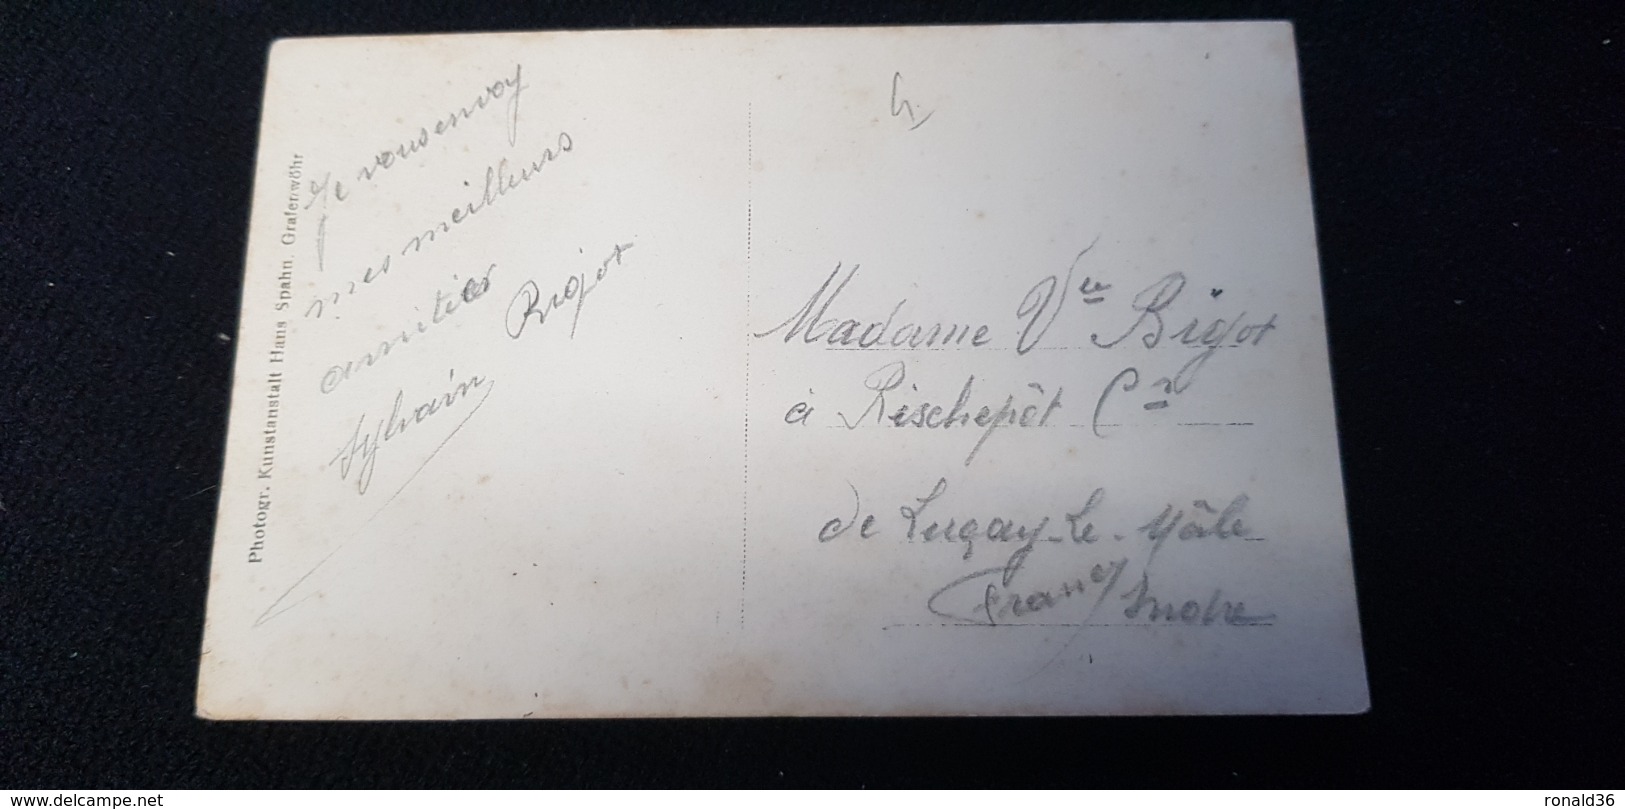 Photogr. Kunstanstalt Hans Spahn, Grafenwöhr
Je vous envoy
mes meilleurs
amitiés
Sylvain Bigot
4
Madame Vve Bigot
à Rischepôt Cne
de Luçay-Le-Mâle
France Indre
www.delcampe.net
ronald36